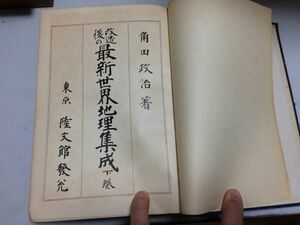 角田政治著
改造後の最新世界地理集成下巻
東京 隆文館發兌